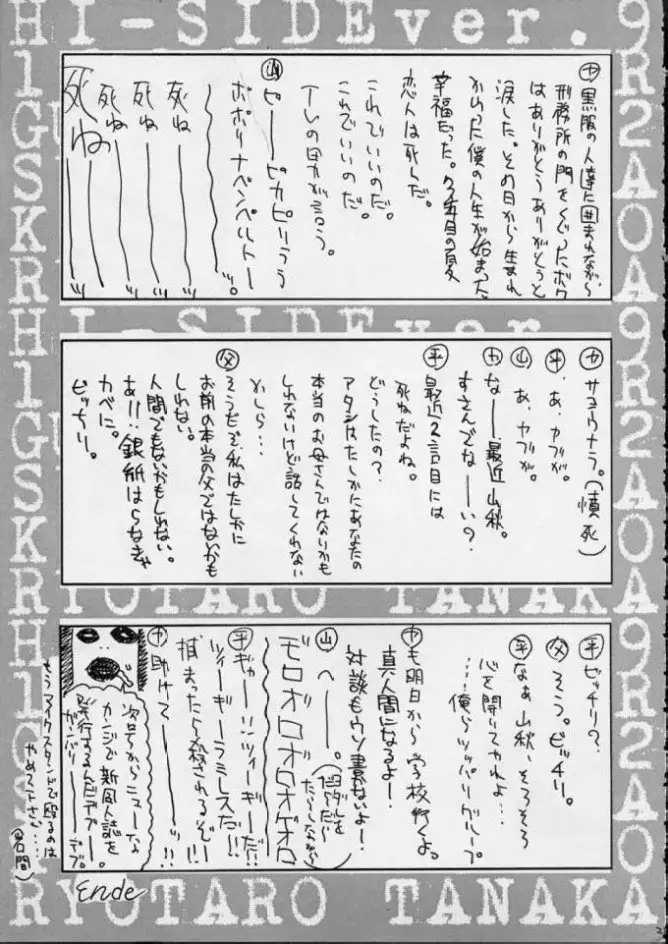 HI-SIDEver.
㋳黒服の人達に囲まれながら、
刑務所の門をくぐったボク
はありがとうありがとうと
涙した。その日から生まれ
かわった僕の人生が始まった。
幸福だった。
恋人は死んだ。
これでいいのだ。
これでいいのだ。
㊤ピーーピカピリラう
ポポリナペンペルトー
死ね
死ね
死ね
死ね
HI-SIDEver.
サヨウナラ。(憤死)
あ、ヤブが。
あ、ヤブが。
なーー最近山秋。
すさんでなーーい?
最近2言目には
死ねだよね。
どうしたの?
アタシはたしかにあなたの
本当のお母さんではないかも
しれないけど話してくれない
かしら…
父 そうだぞ私はたしかに
お前の本当の父ではないかも
しれない。
人間でもないかもしれない。
あ!!銀紙はらなきゃ
カベに。
ピッチリ。
RYOTARO TANAKA
ピッチリ?
父 そう。ピッチリ。
なぁ山秋、そろそろ
心を開いてやれよ…
……俺らツッパリグループ
も明日から学校行くよ。
真人間になるよー!
対談もウソ書かないよー!
山 へーー。
モロオロオロオゲロ
ギャーー!!ツィーギーだ!!
ツィーギーラミレスだ!!
捕まったら殺されるぞー
助けてーーーッ!!
次号からニューな
カンジで新同人誌を
発行するんだデブー。
ガンバリーーデブ。
もうマイクスタンドで殴るのは
やめて下さい…
(岩間)
Ende
RYOTARO TANAKA